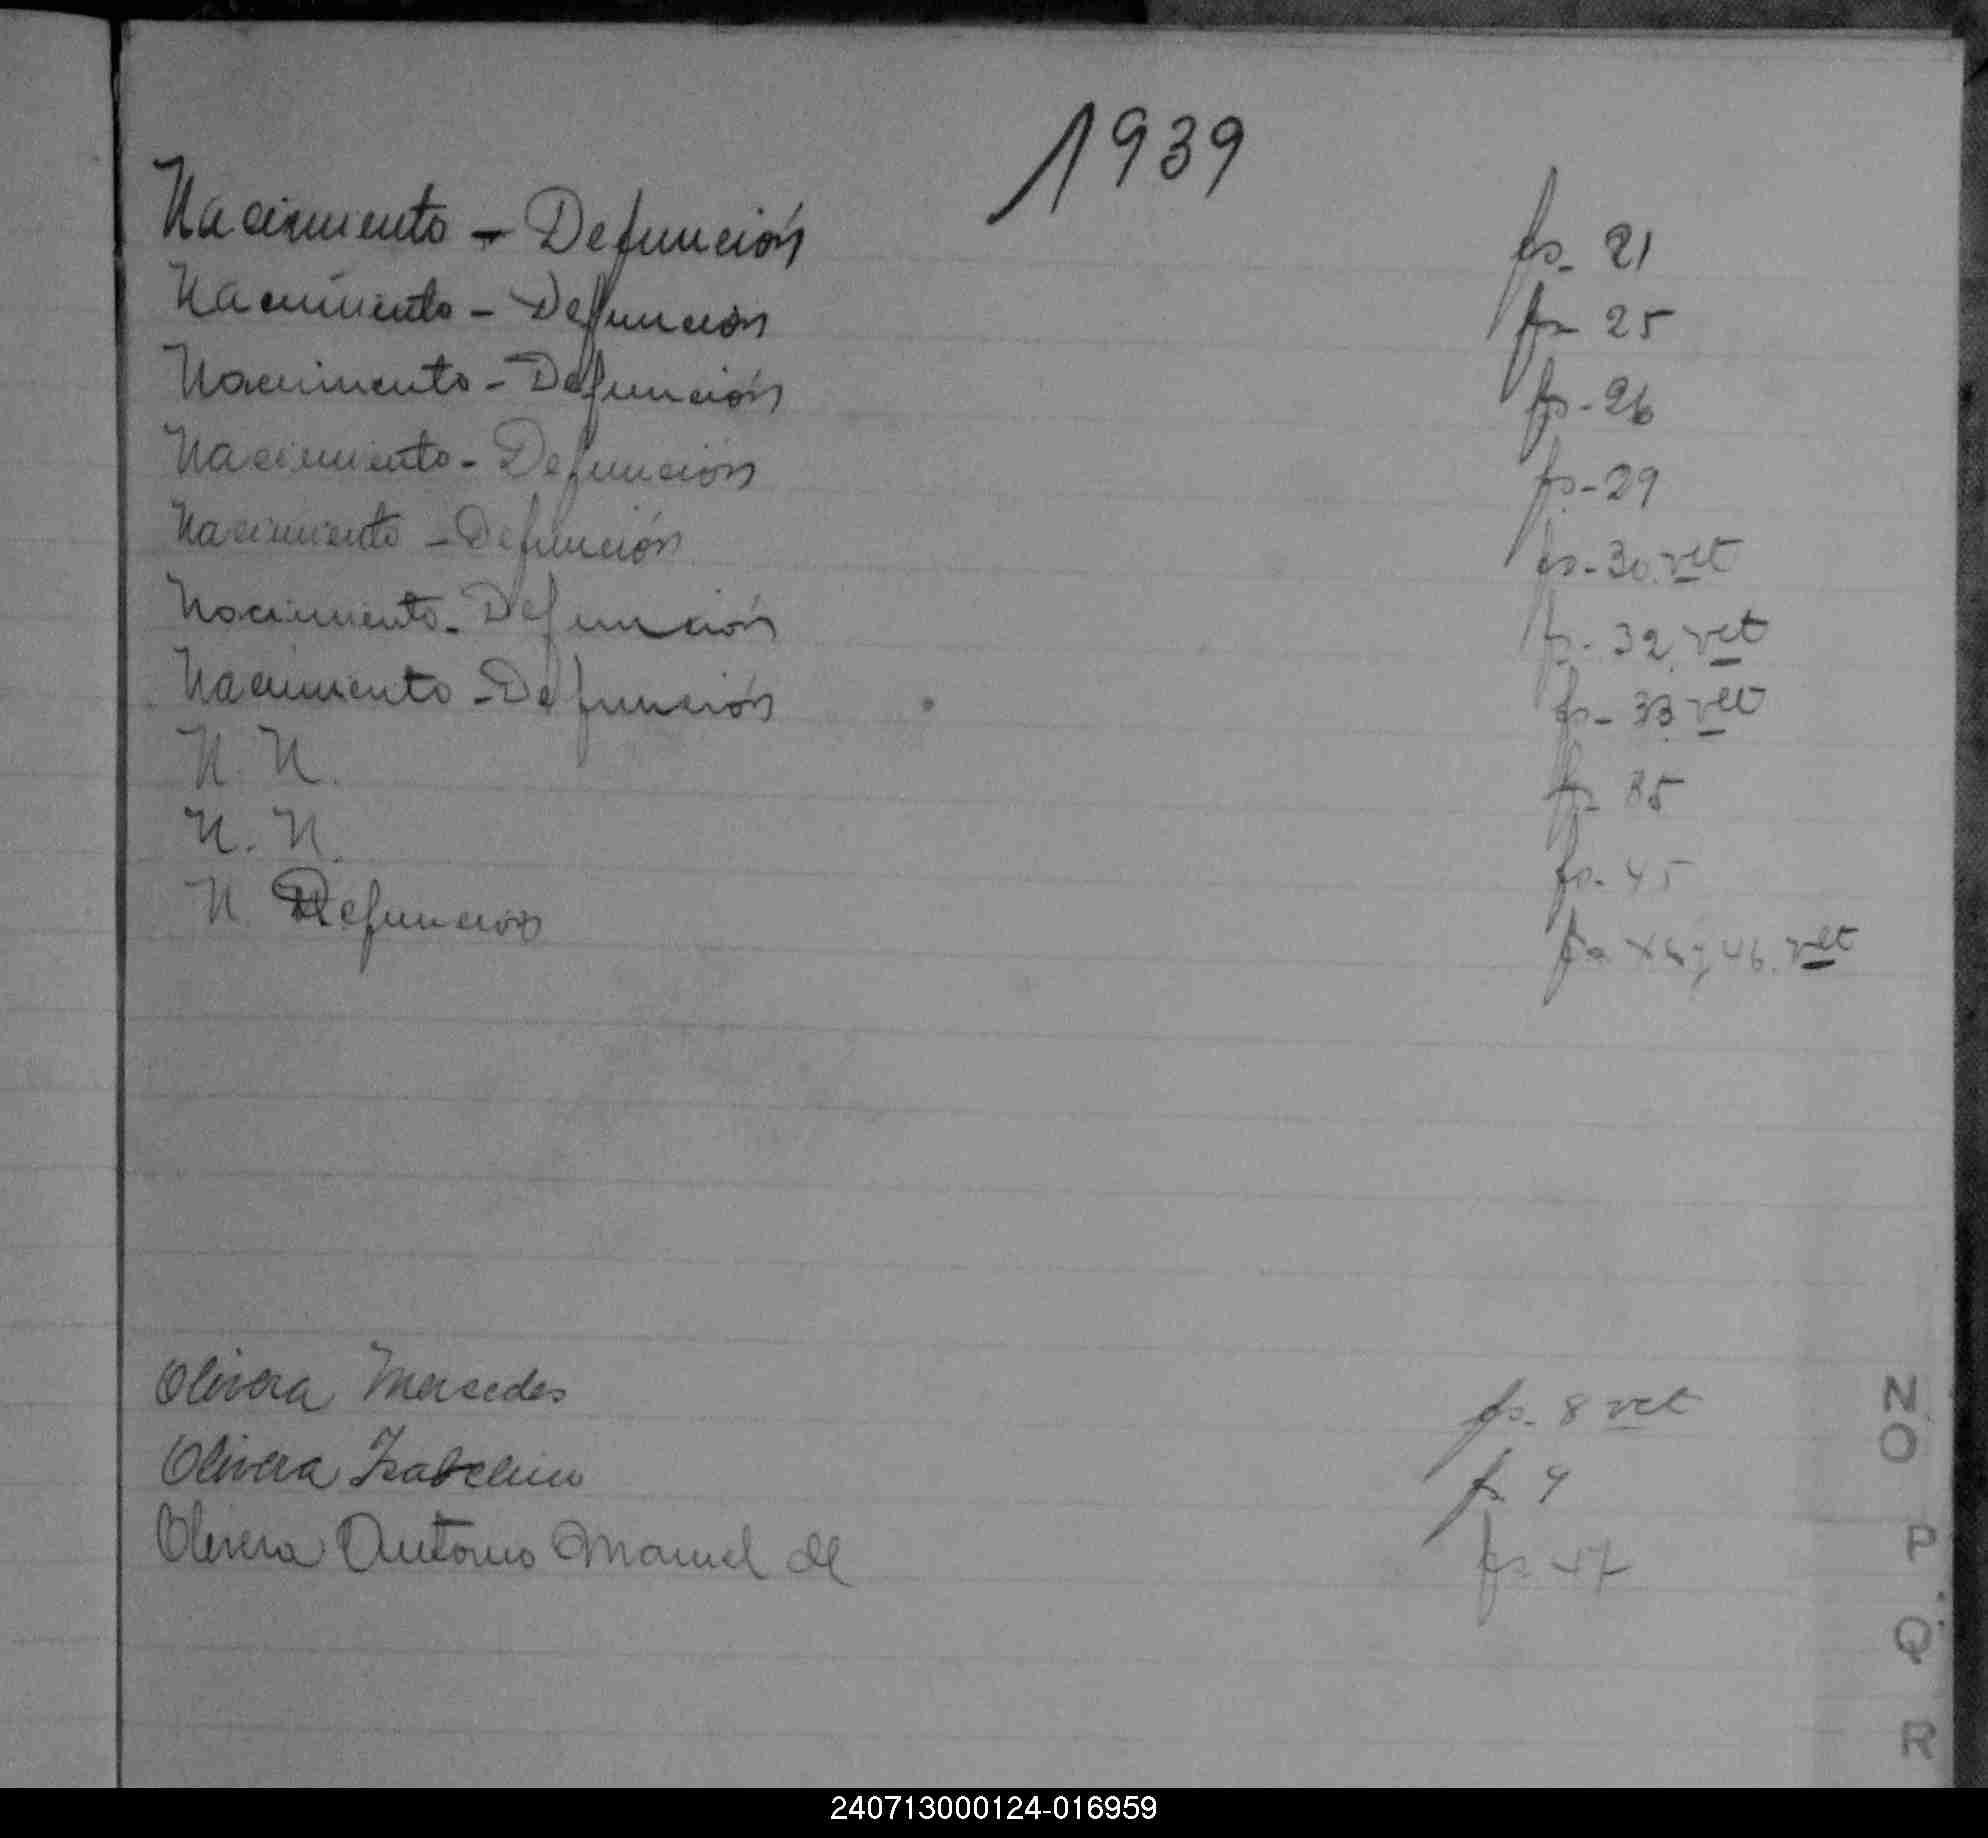 1939
Nacimiento - Defunción fs- 21
Nacimiento - Defunción fs- 25
Nacimiento - Defunción fs- 26
Nacimiento - Defunción fs- 29
Nacimiento - Defunción fs- 30. vet
Nacimiento - Defunción fs- 32. vet
Nacimiento - Defunción fs- 33 vet
N. N. fs-
N. N. fs- 45
N. Defuncion fs 46. vet
Olivera Mersedes fs- 8 vet
Olivera Isabelino fs 9
Olivera Antonio Manuel de fs- 47
N
O
P
Q
R
240713000124-016959